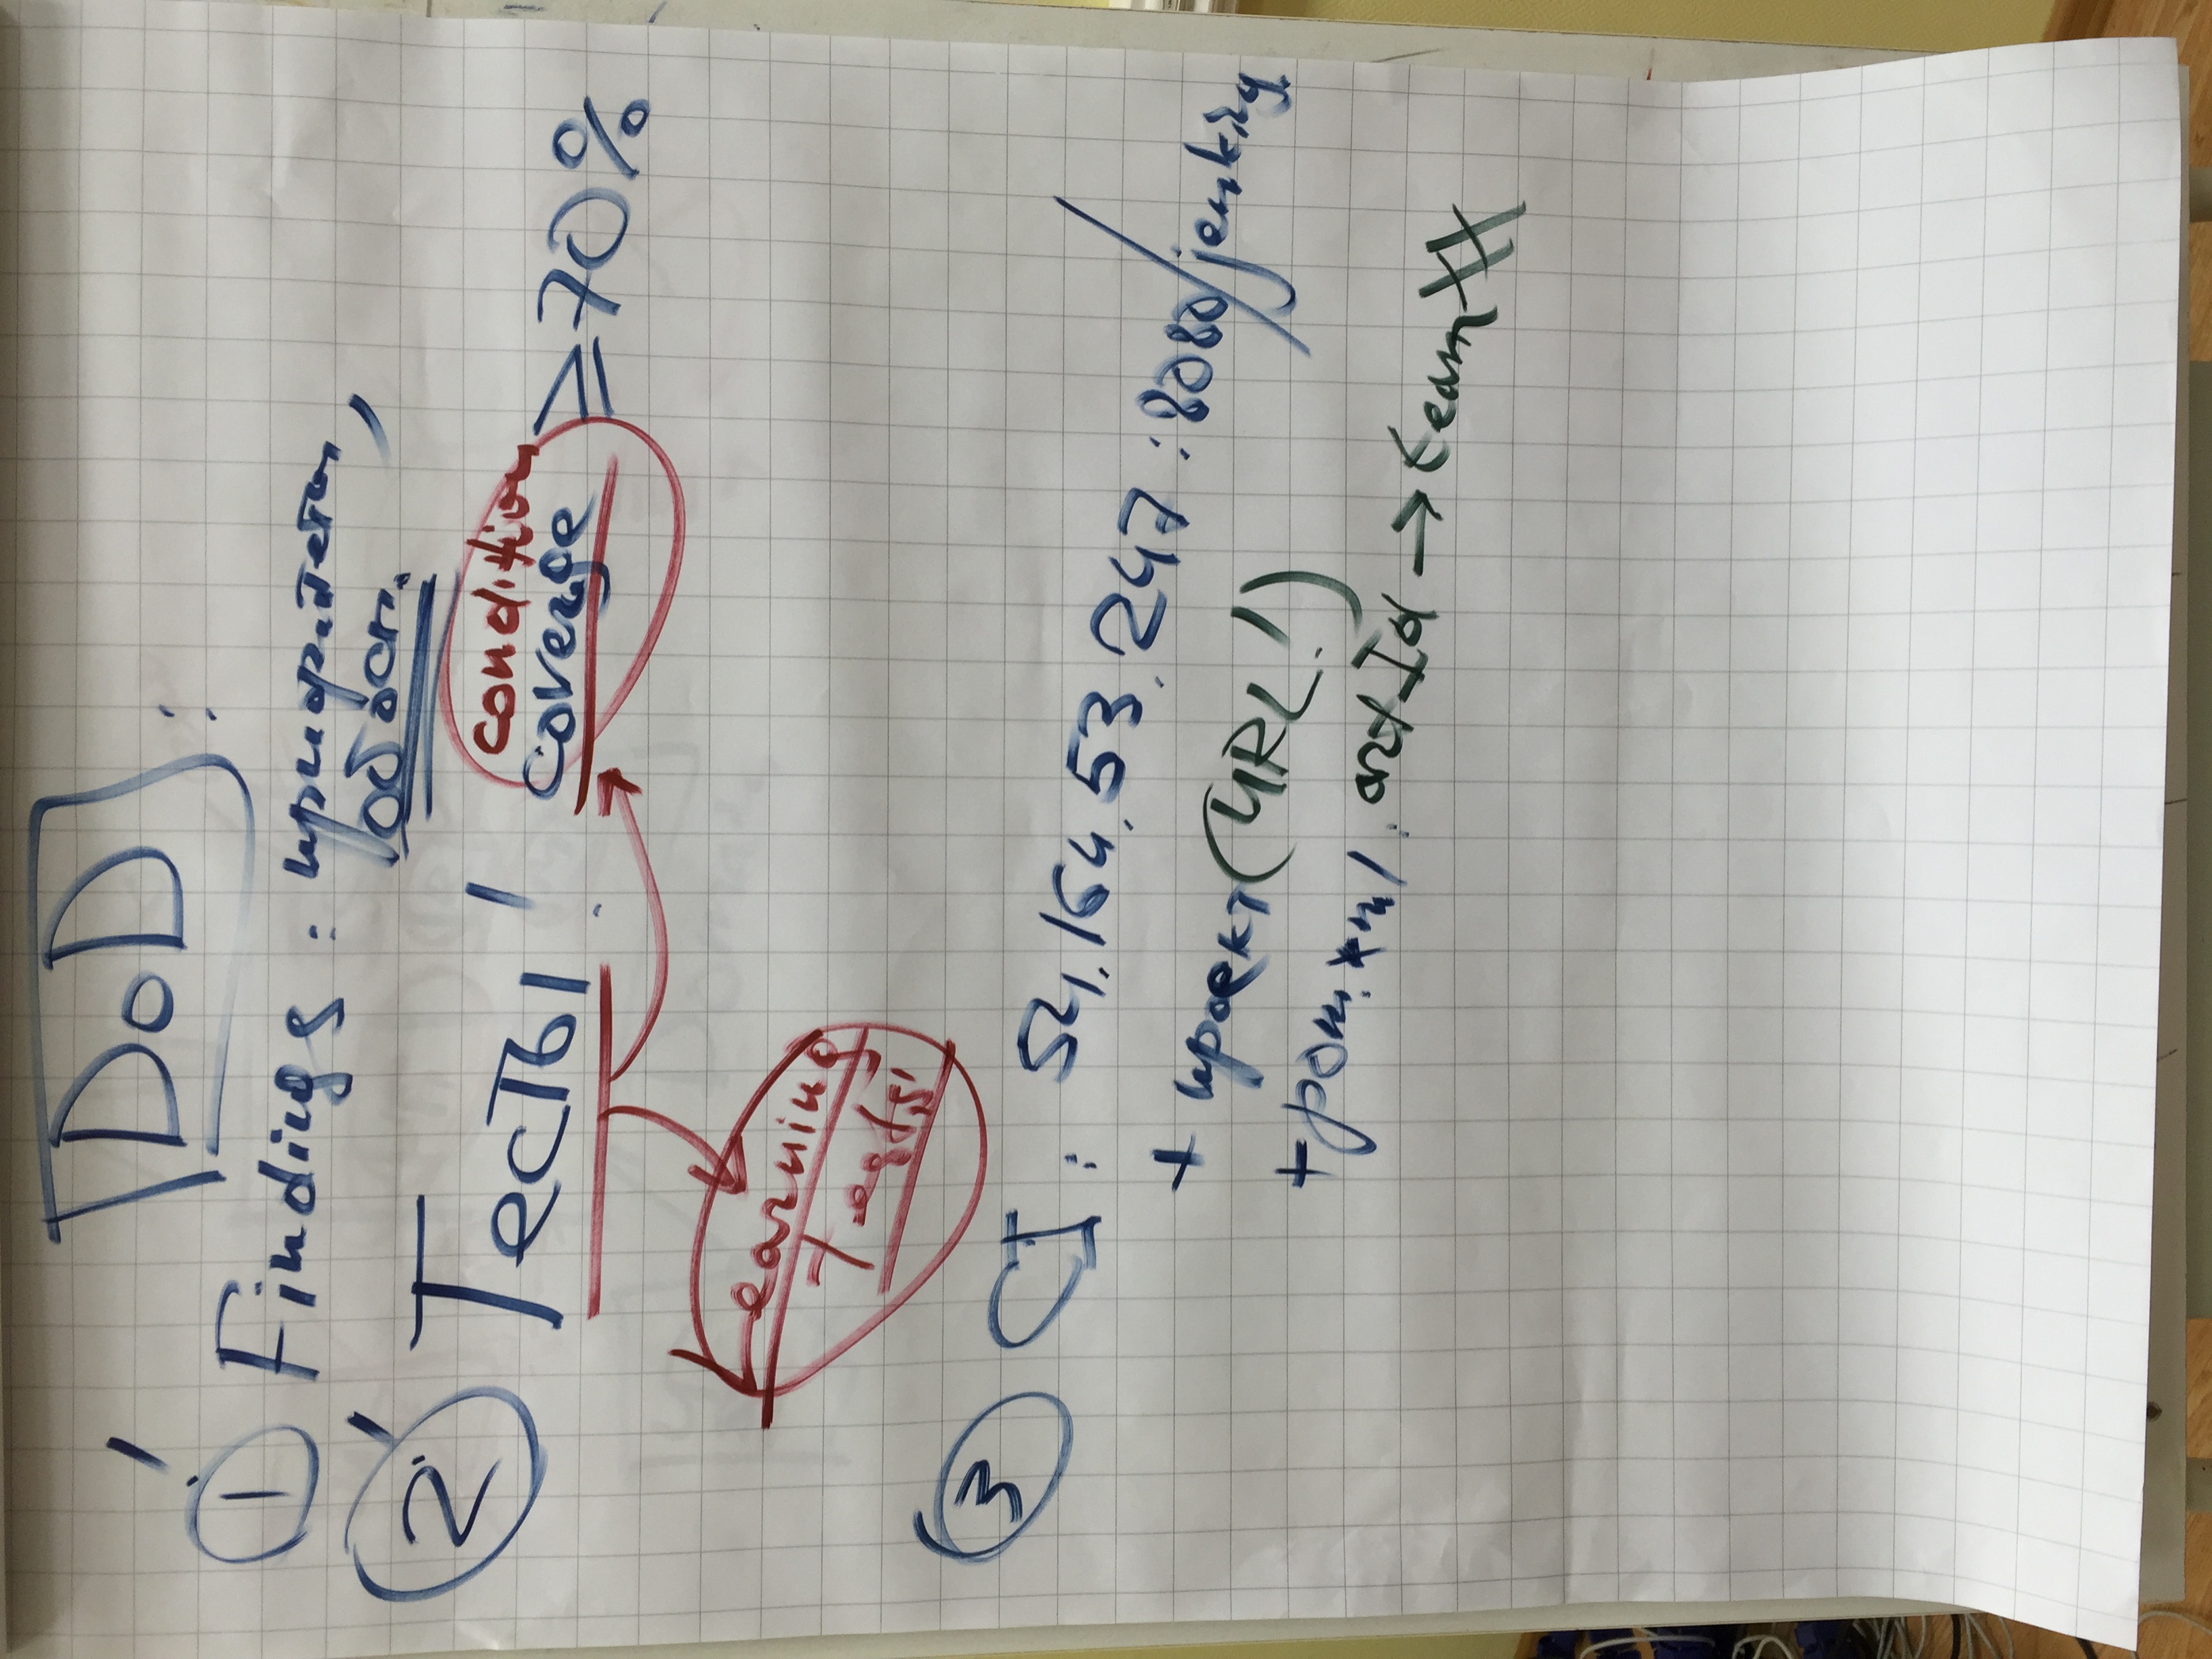 DoD :
1 Findings : приоритеты,
обосн.
2 Тесты ! condition
coverge ≥ 70%
Learning
Tests
3 CI : 54.164.53.247 :8080/jenkins
+ проект (URL!)
+ pom.xml : artId → teamXX